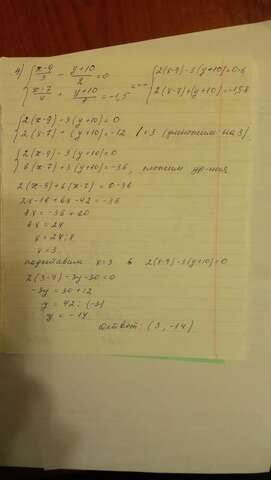 4) { (x-9)/3 - (y+10)/2 = 0 { 2(x-9)-3(y+10)=0·6
{ (x-7)/4 + (y+10)/8 = -1,5 { 2(x-7)+(y+10)=-1,5·8
{ 2(x-9)-3(y+10)=0
{ 2(x-7)+(y+10)=-12 /·3 (умножим на 3)
{ 2(x-9)-3(y+10)=0
{ 6(x-7)+3(y+10)=-36, сложим ур-ния
2(x-9)+6(x-7)=0-36
2x-18+6x-42=-36
8x=-36+60
8x=24
x=24:8
x=3
подставим x=3 в 2(x-9)-3(y+10)=0
2(3-9)-3y-30=0
-3y=30+12
y=42:(-3)
y=-14
Ответ: (3,-14)